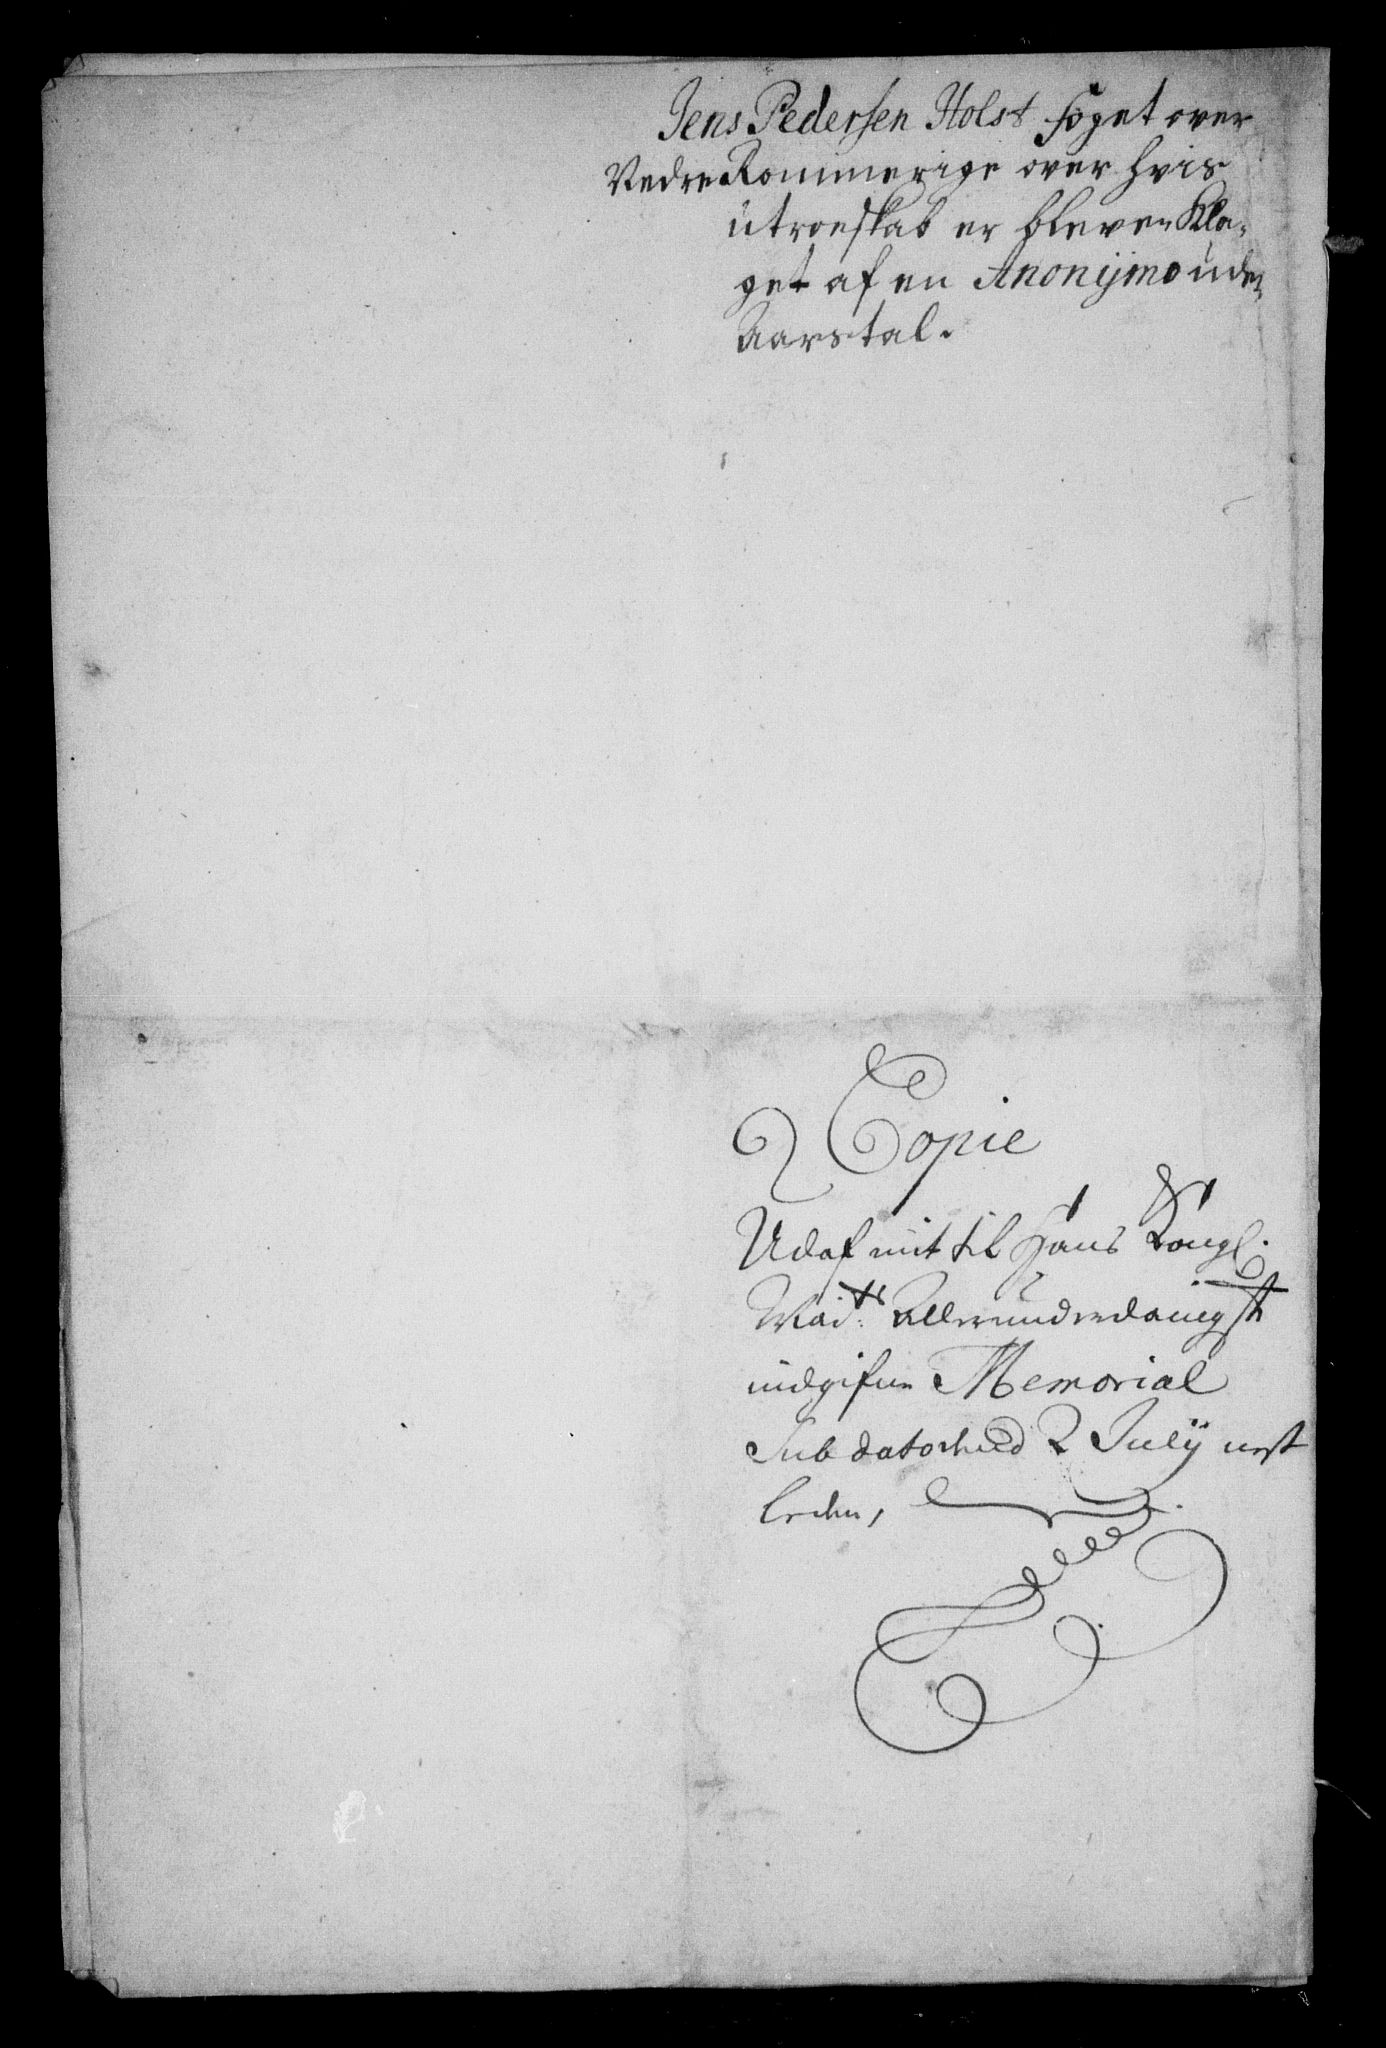 Jens Pedersen Holst foget over
Nedre Rommerige over hvis
utroeskab er bleven Kla-
get af en Anonijmo uden
Aarstal.
Copie
Udaf mit til Hans Kongl.
Maj.ts Allerunderdanigst
indgifne Memorial
Sub dato den 2 Julij nest
leden,